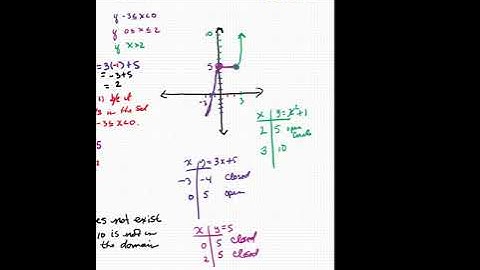 y -3≤x<0
y 0≤x≤2
y x>2
=3(-1)+5
=-3+5
=2
1) b/c it
is in the set
-3≤x<0.
5
10
5
-3
3
x y=x²+1
2 5 open circle
3 10
x y=3x+5
-3 -4 closed
0 5 open
es not exist
10 is not in
the domain
x y=5
0 5 closed
2 5 closed